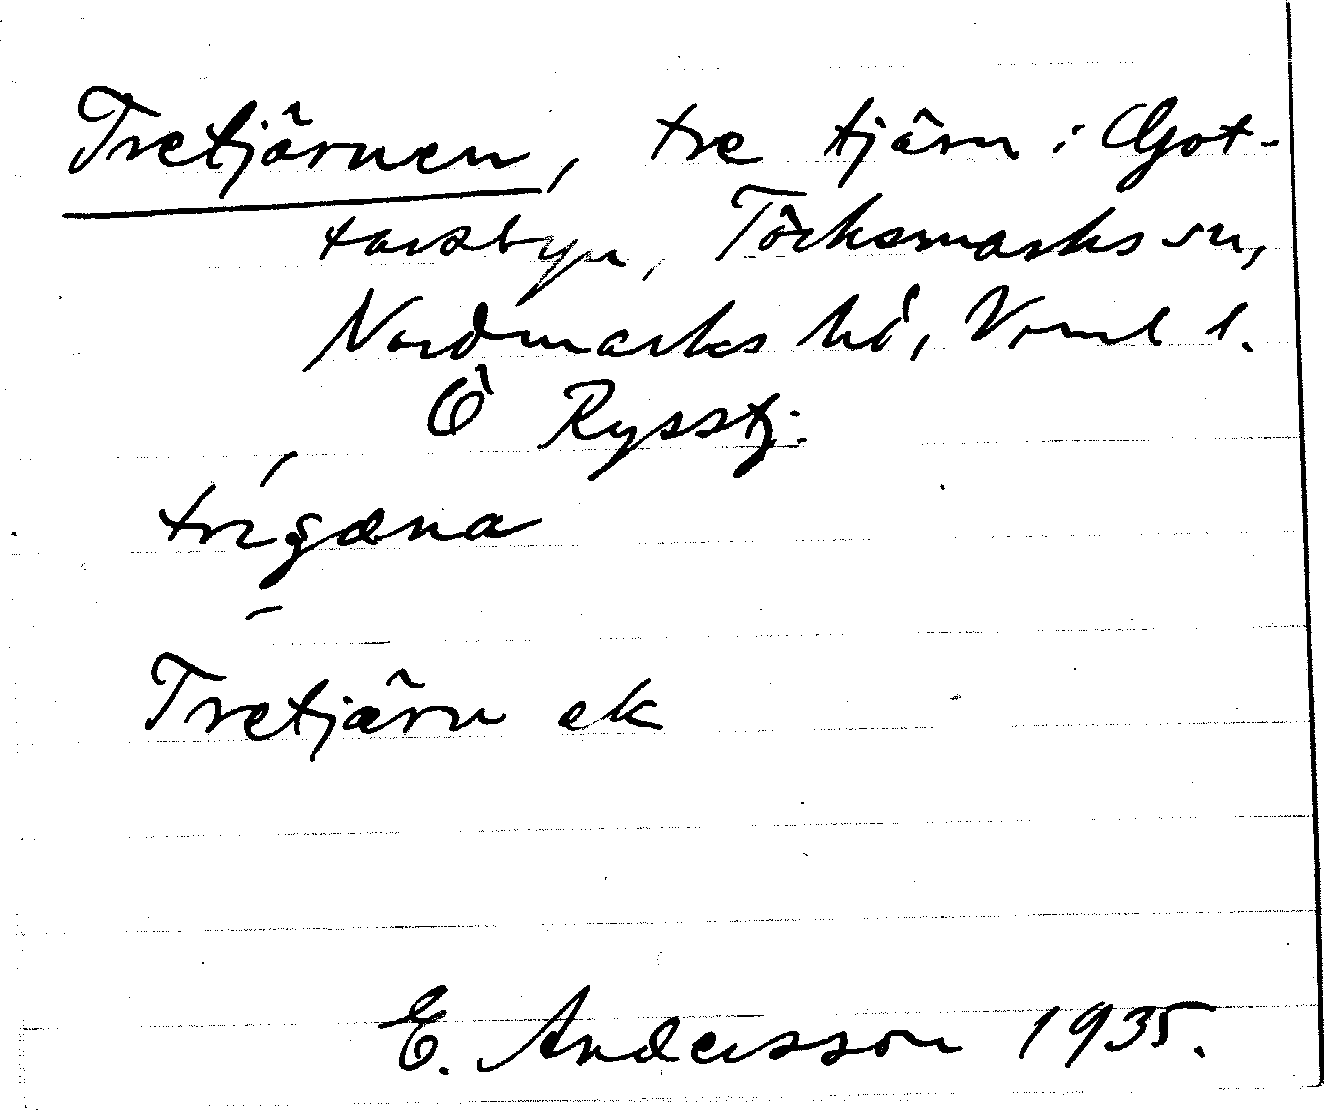 Tretjärnen, tre tjärn i Got-
tarsbyn, Töcksmarks sn,
Nordmarks hd, Verml l.
Ö Rysstj.
Tretjärn ek
E. Andersson 1935.